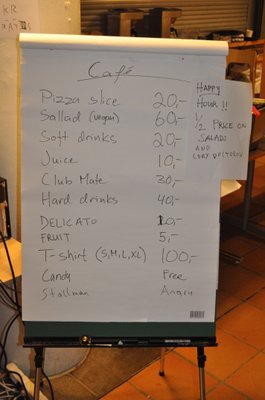 Café
Pizza slice 20,-
Sallad (vegan) 60,-
Soft drinks 20,-
Juice 10,-
Club Mate 30,-
Hard drinks 40,-
DELICATO 10,-
FRUIT 5,-
T-shirt (S,M,L,XL) 100,-
Candy Free
Stallman Angry
HAPPY
HOUR !!
1/2 PRICE ON
SALADS
AND
KR